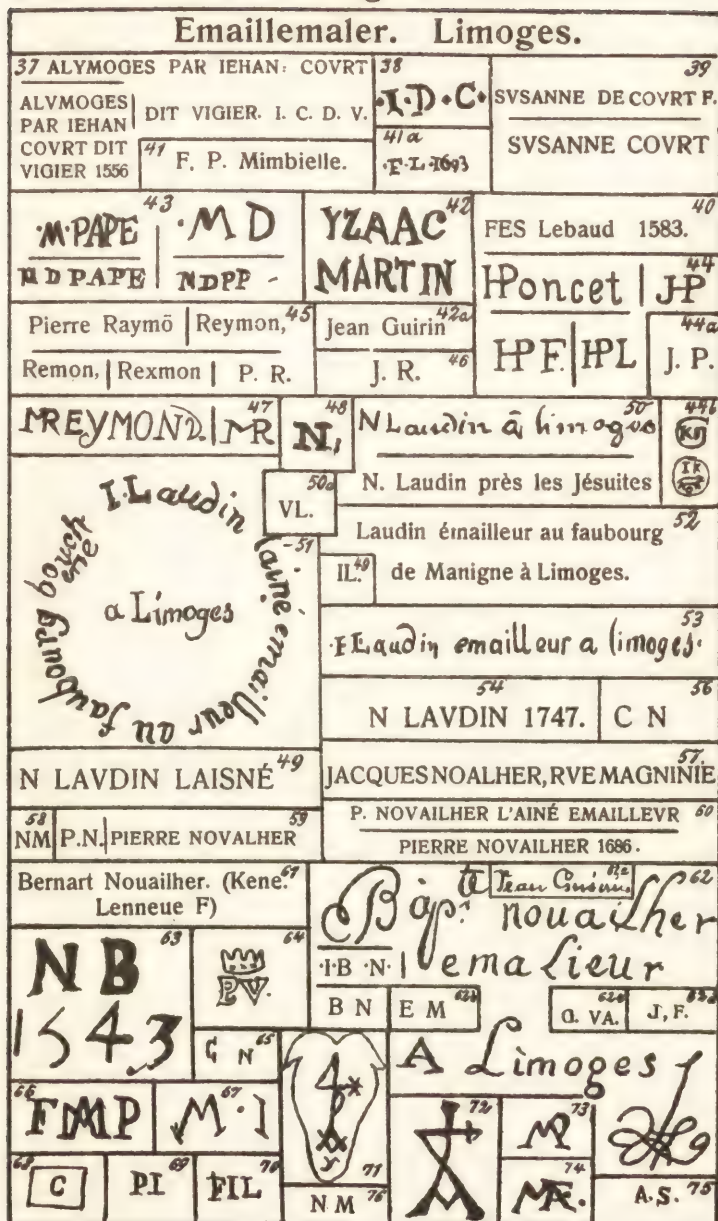 Emaillemaler. Limoges.
37 ALYMOGES PAR IEHAN: COVRT
ALVMOGES
PAR IEHAN
COVRT DIT
VIGIER 1556
DIT VIGIER. I. C. D. V.
41 F. P. Mimbielle.
38
·I·D·C·
41a
·F·L·1693
39
SVSANNE DE COVRT F.
SVSANNE COVRT
43
·M·PAPE
M D PAPE
·M D
NDPP -
42
YZAAC
MARTIN
40
FES Lebaud 1583.
44
HPoncet
J-P
HPF.
HPL
44a
J. P.
45
Pierre Raymö
Reymon,
Remon,
Rexmon
P. R.
42a
Jean Guirin
46
J. R.
47
MREYMOND.
MR
48
N,
50
N Laudin â limoges
N. Laudin près les Jésuites
50a
VL.
51
I·Laudin lainé emailleur au faubourg bouch
a Limoges
52
Laudin émailleur au faubourg
de Manigne à Limoges.
49
IL.
53
·I Laudin emailleur a limoges·
54
N LAVDIN 1747.
56
C N
49
N LAVDIN LAISNÉ
57.
JACQUES NOALHER, RVE MAGNINIE
58
NM
59
P.N.
PIERRE NOVALHER
60
P. NOVAILHER L'AINÉ EMAILLEVR
PIERRE NOVAILHER 1686.
61
Bernart Nouailher. (Kene.
Lenneue F)
62
Bap.te nouailher
emalieur
·I·B·N·
B N
E M
G. VA.
J, F.
A Limoges
63
N B
1543
64
P.V.
65
G N
66
FDMP
67
M·I
68
C
69
PI
70
FIL
71
76
N M
72
73
MP
74
75
A.S.